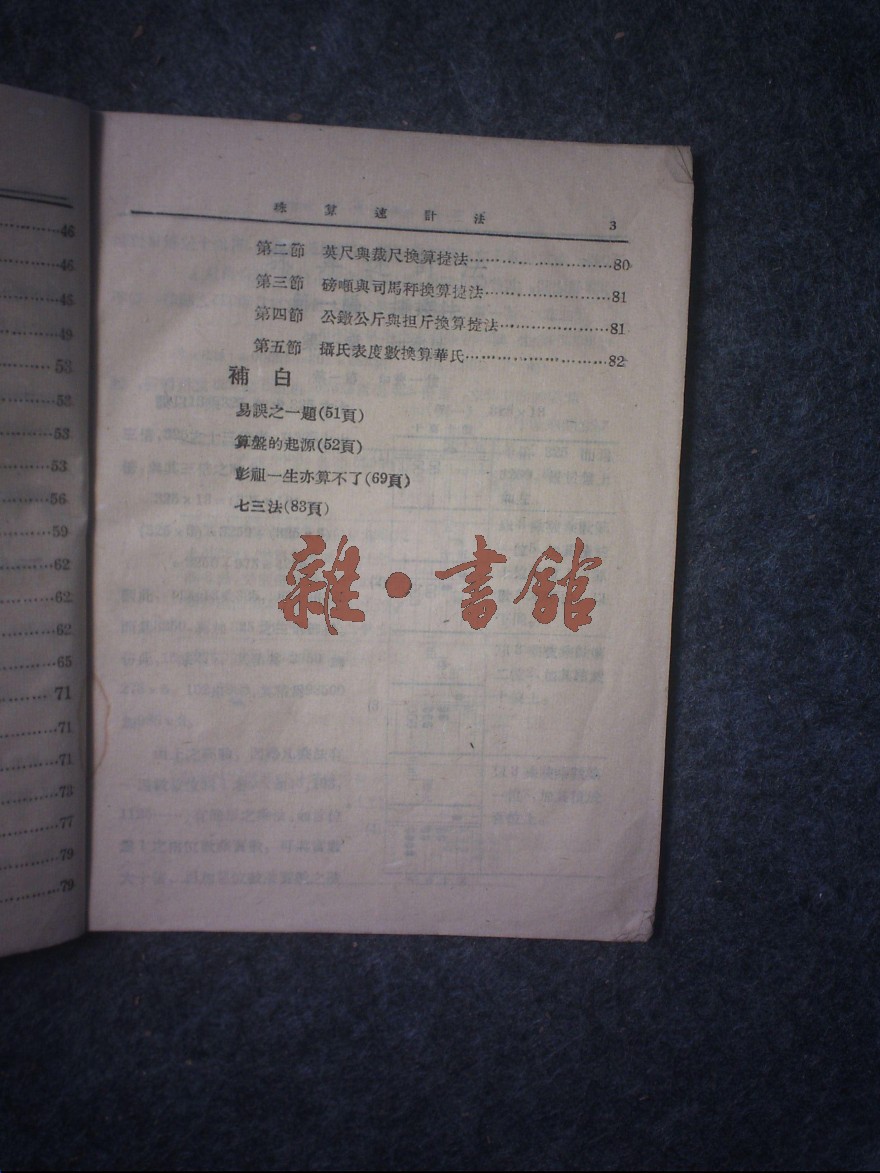 46
46
48
49
53
53
53
53
56
59
62
62
62
65
71
71
71
73
77
79
79
珠算速計法 3
第二節 英尺與裁尺換算㨗法……………………80
第三節 磅噸與司馬秤換算㨗法…………………81
第四節 公鐓公斤與担斤換算㨗法………………81
第五節 攝氏表度數換算華氏……………………82
補白
易誤之一題(51頁)
算盤的起源(52頁)
彭祖一生亦算不了(69頁)
七三法(83頁)
雜·書館